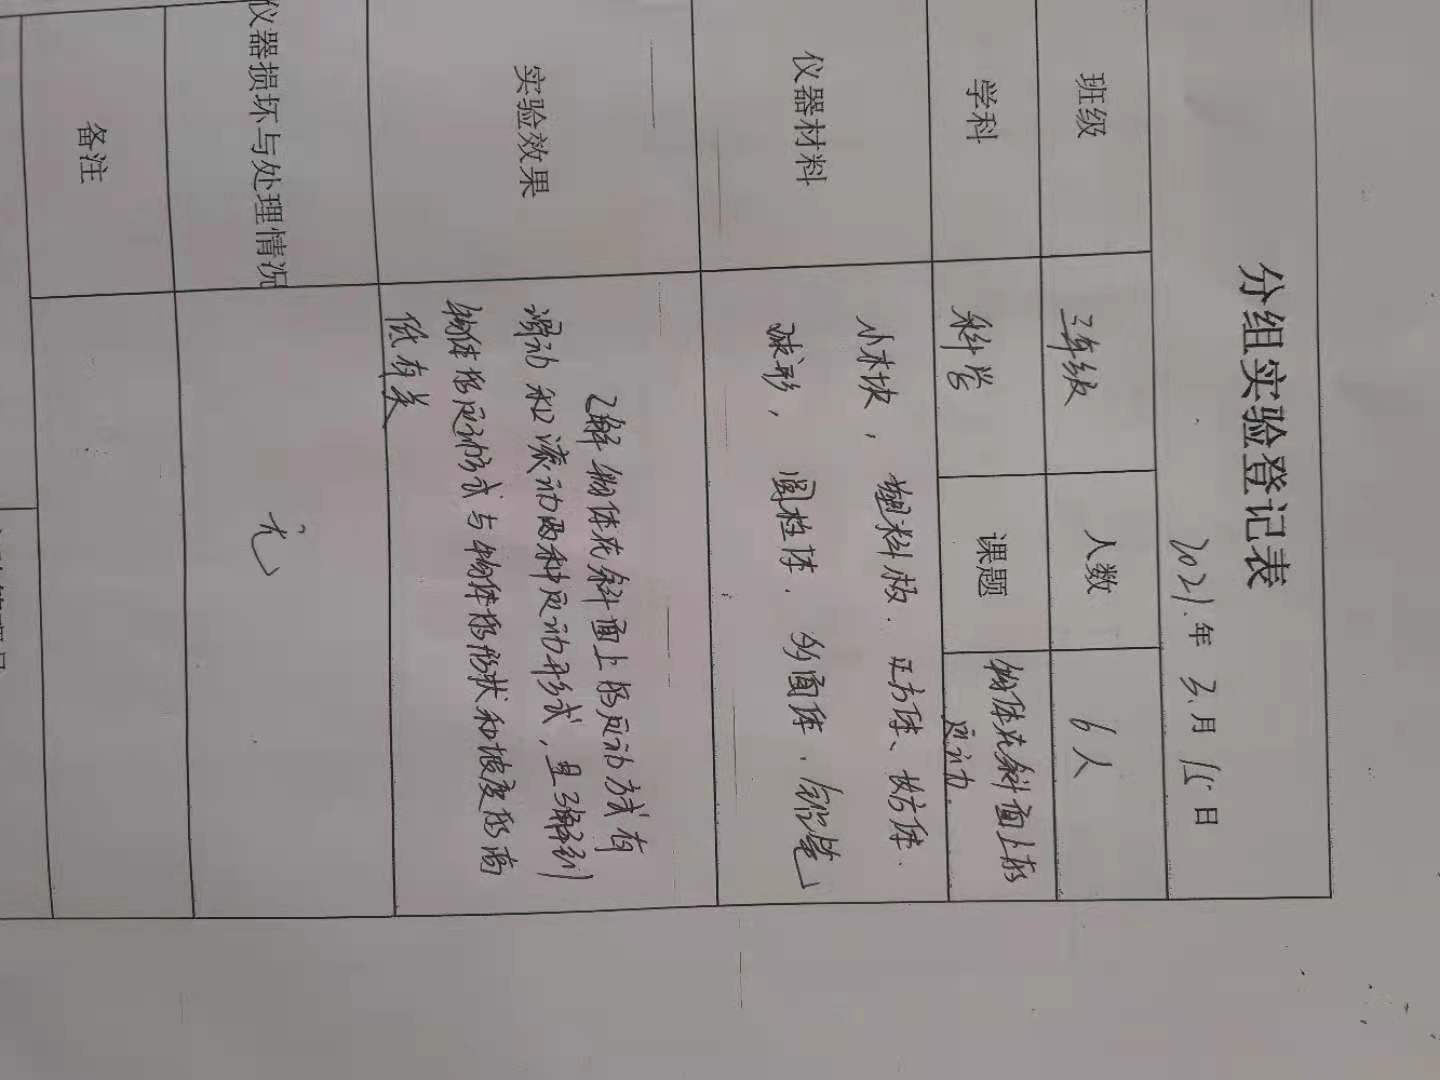 分组实验登记表
2021.年 3.月 15日
班级 三年级 人数 6人
学科 科学 课题 物体在斜面上的
运动.
仪器材料
小木块， 塑料板. 正方体、长方体.
球形， 圆柱体. 多面体. 铅笔
实验效果
了解物体在斜面上的运动方式有
滑动和滚动两种运动形式，且了解到
物体的运动形式与物体的形状和坡度的高
低有关
仪器损坏与处理情况 无
备注